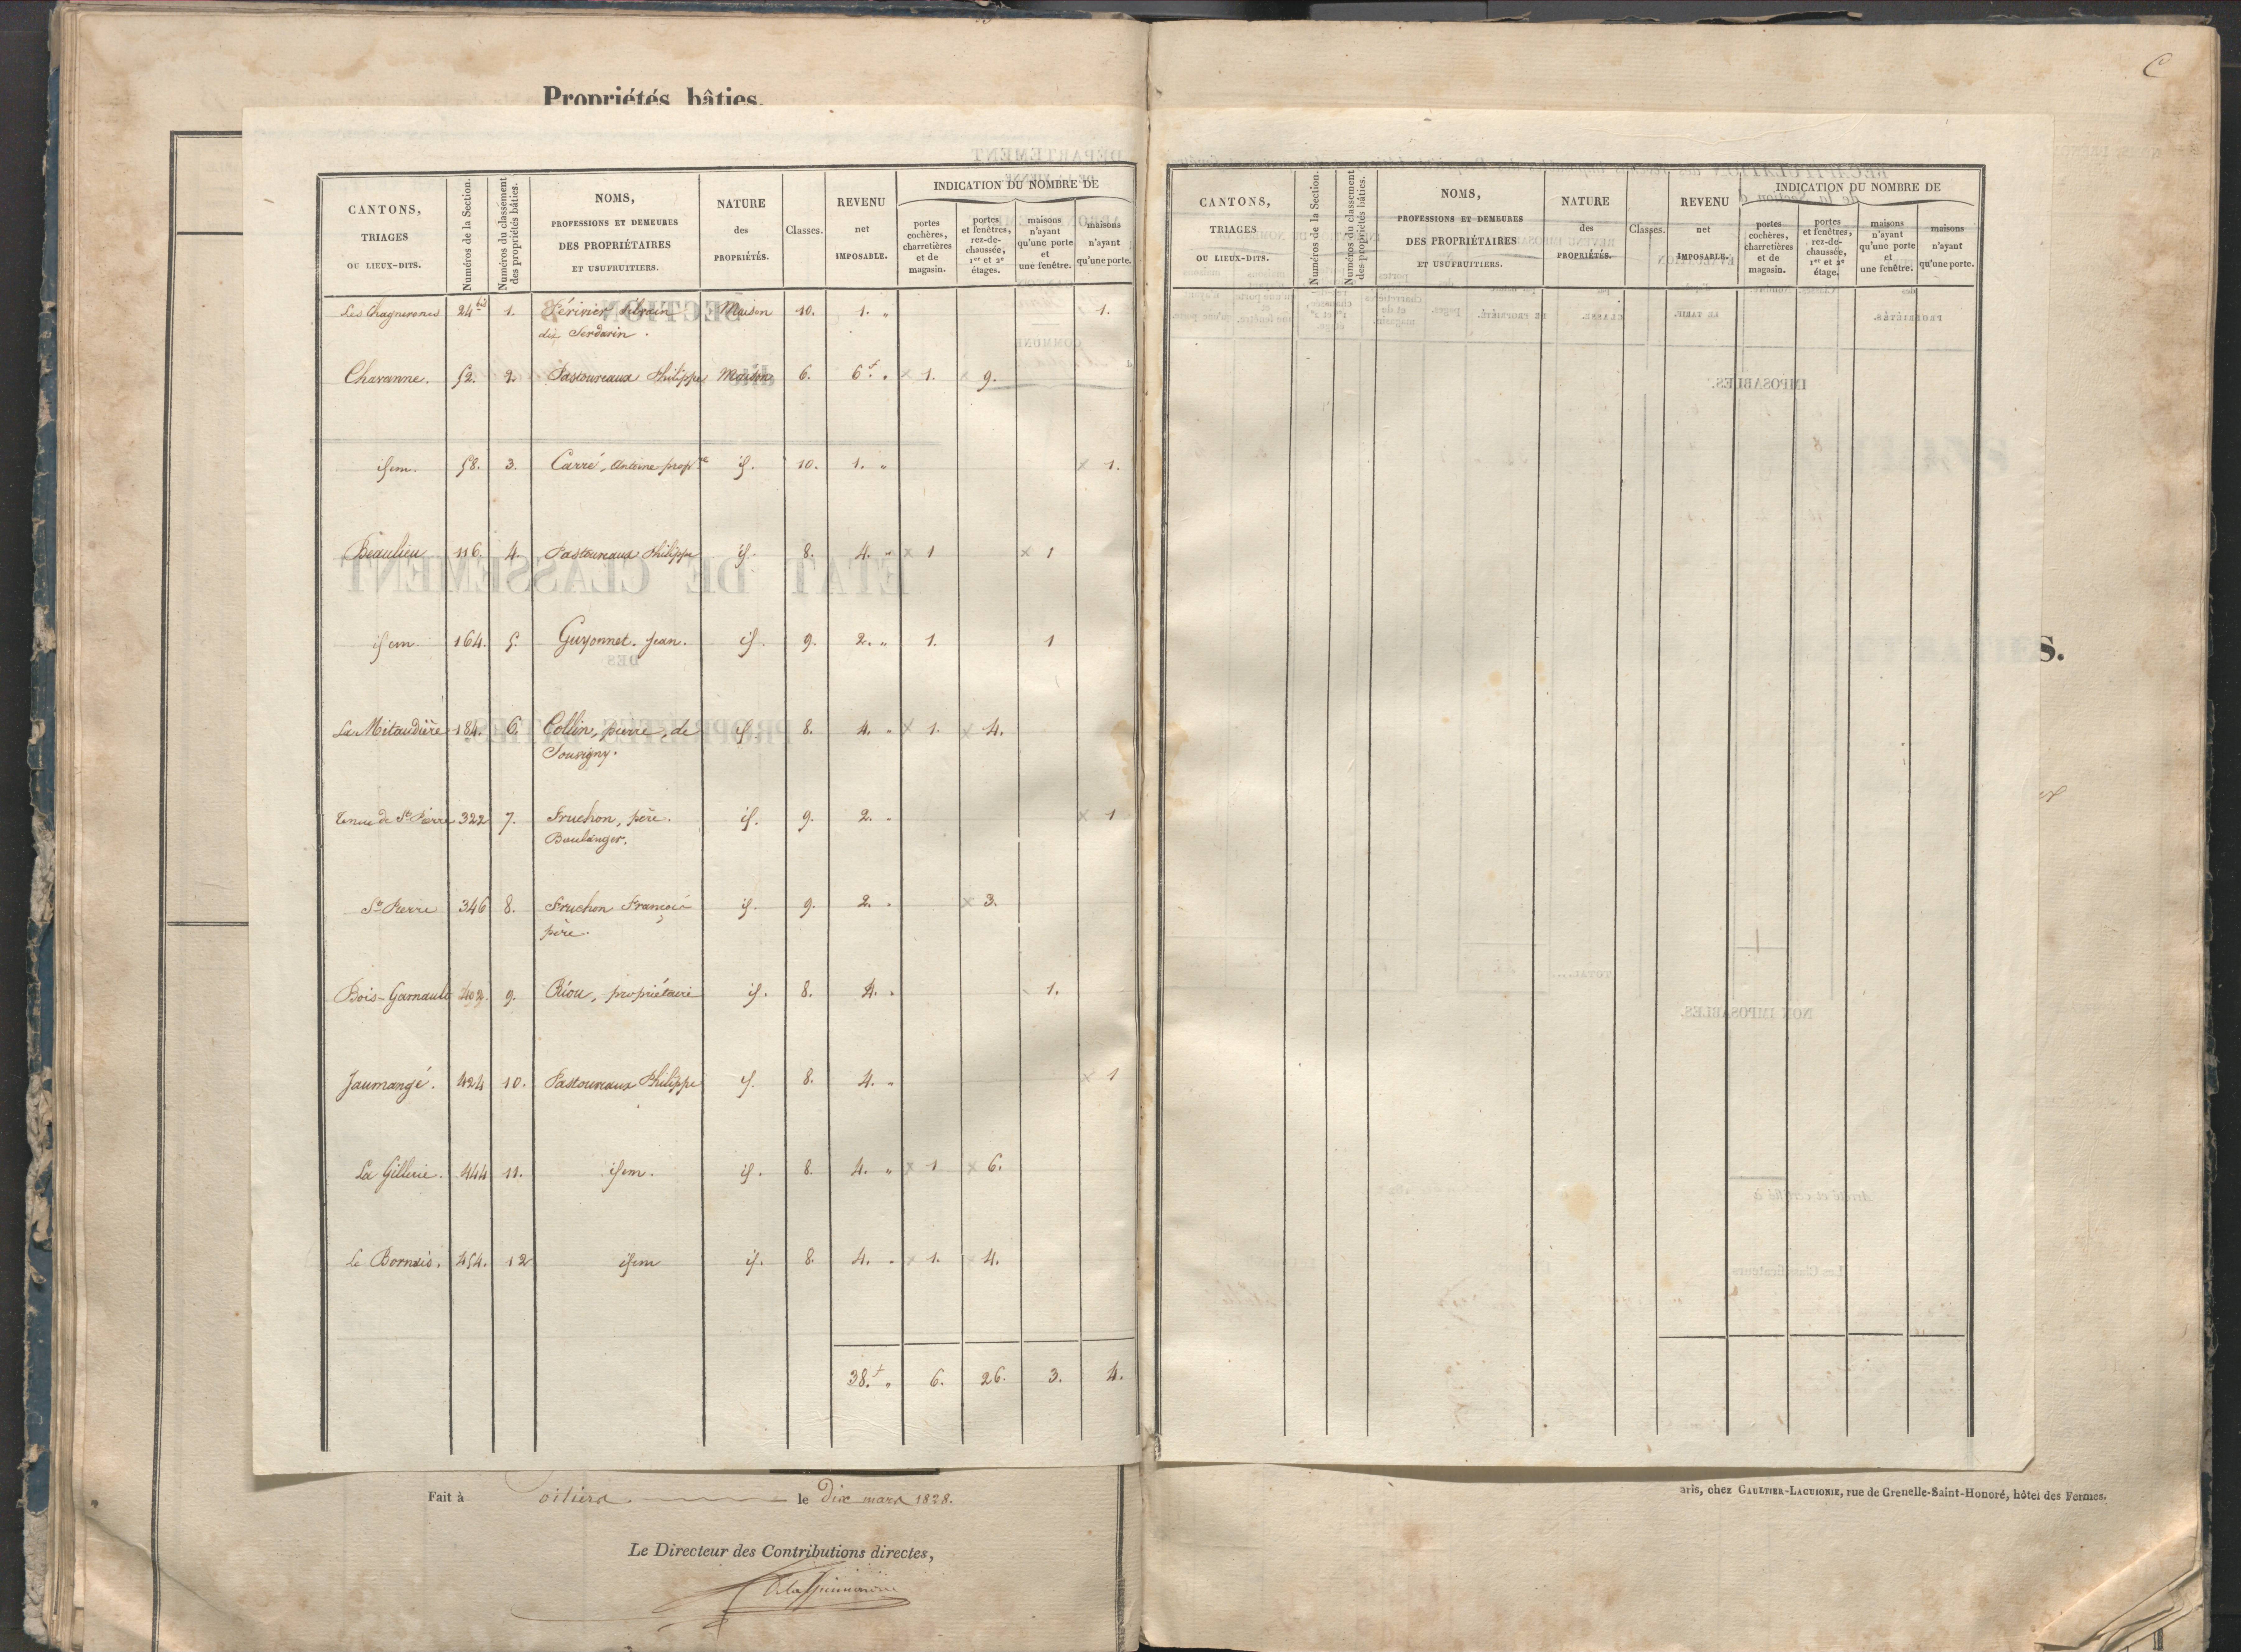 Propriétés bâties.
C
CANTONS, TRIAGES OU LIEUX-DITS. | Numéros de la Section. | Numéros du classement des propriétés bâties. | NOMS, PROFESSIONS ET DEMEURES DES PROPRIÉTAIRES ET USUFRUITIERS. | NATURE des PROPRIÉTÉS. | Classes. | REVENU net IMPOSABLE. | INDICATION DU NOMBRE DE
portes cochères, charretières et de magasin. | portes et fenêtres, rez-de-chaussée, 1er et 2e étages. | maisons n'ayant qu'une porte et une fenêtre. | maisons n'ayant qu'une porte.
24 bis 1. Périvier Silvain Maison 10. 1. " 1.
dit
Chavanne. 52. 2. Pastoureaux Philippe Maison 6. 6f. " x 1. x 9.
ifem. 58. 3. Carré, Antoine propre if. 10. 1. " x 1.
Beaulieu 116. 4. Pastoureaux Philippe if. 8. 4. " x 1 x 1
ifem 164. 5. Guyonnet. Jean. if. 9. 2. " 1. 1
La Mitaudière 184. 6. Collin, pierre, de if. 8. 4. " x 1. x 4.
Sousigny.
Tenue de St Pierre 322 7. Fruchon, père. if. 9. 2. " x 1
Boulanger.
St Pierre 346 8. Fruchon François if. 9. 2. " x 3.
père.
Bois-Garnault 9. Riou, propriétaire if. 8. 4. " 1.
Jaumangé. 424 10. Pastoureaux Philippe if. 8. 4. " x 1
La Gillerie. 444 11. ifem. if. 8. 4. " x 1 x 6.
Le Bornais. 454. 12 ifem if. 8. 4. " x 1. 4.
38.f " 6. 26. 3. 4.
CANTONS, TRIAGES OU LIEUX-DITS. | Numéros de la Section. | Numéros du classement des propriétés bâties. | NOMS, PROFESSIONS ET DEMEURES DES PROPRIÉTAIRES ET USUFRUITIERS. | NATURE des PROPRIÉTÉS. | Classes. | REVENU net IMPOSABLE. | INDICATION DU NOMBRE DE
portes cochères, charretières et de magasin. | portes et fenêtres, rez-de-chaussée, 1er et 2e étage. | maisons n'ayant qu'une porte et une fenêtre. | maisons n'ayant qu'une porte.
S.
Fait à oitiers le dix mars 1828.
Le Directeur des Contributions directes,
aris, chez GAULTIER-LAGUIONIE, rue de Grenelle-Saint-Honoré, hôtel des Fermes.